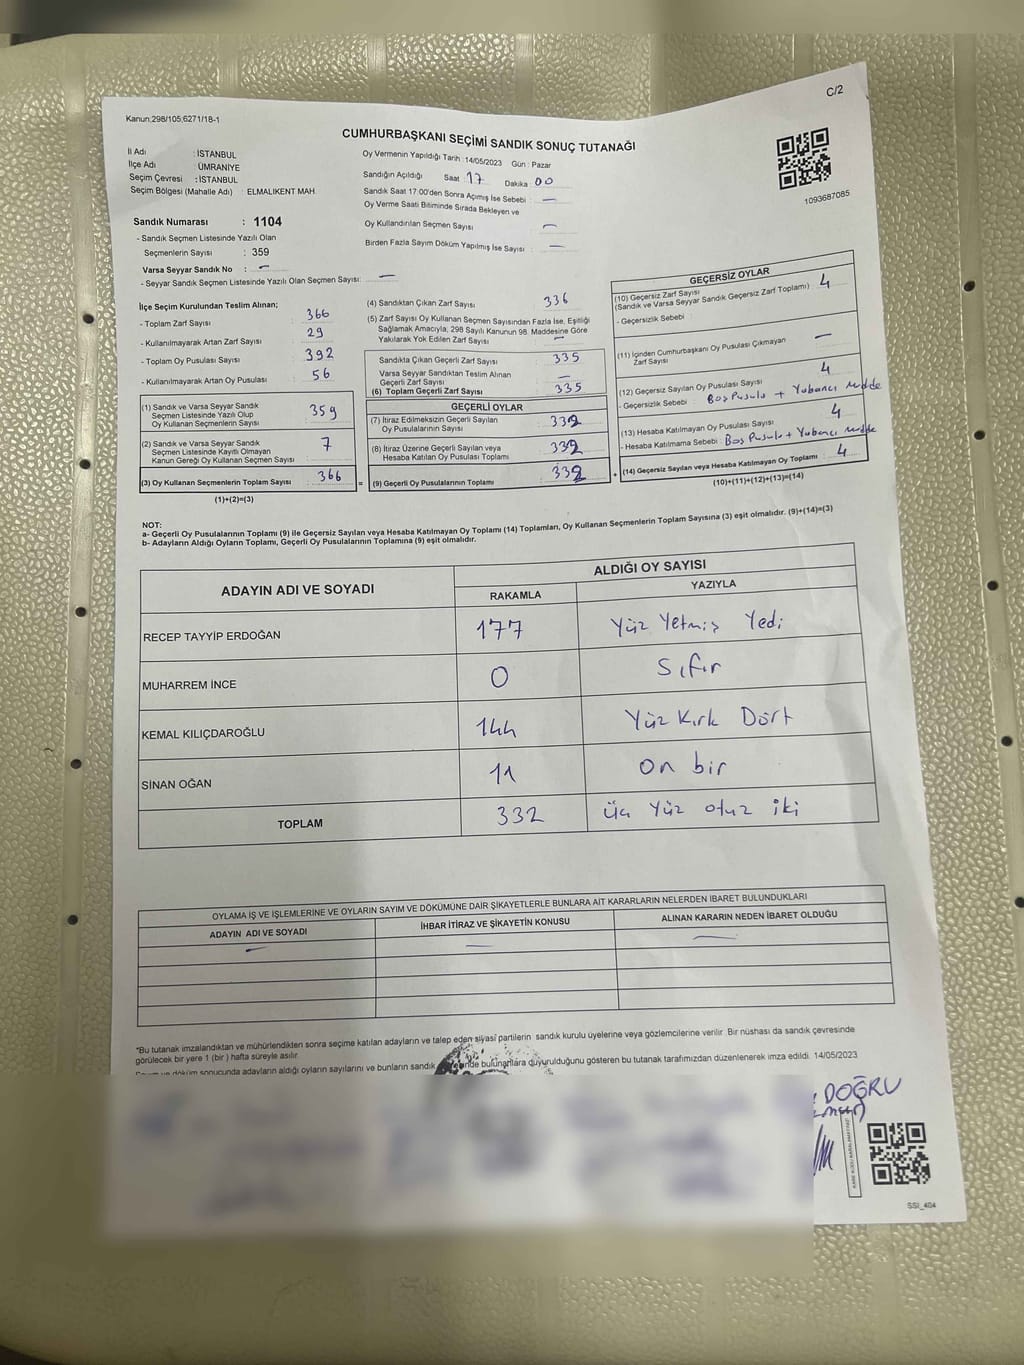 C/2
Kanun:298/105;6271/18-1
CUMHURBAŞKANI SEÇİMİ SANDIK SONUÇ TUTANAĞI
İl Adı : İSTANBUL
İlçe Adı : ÜMRANİYE
Seçim Çevresi : İSTANBUL
Seçim Bölgesi (Mahalle Adı) : ELMALIKENT MAH.
Oy Vermenin Yapıldığı Tarih : 14/05/2023 Gün : Pazar
Sandığın Açıldığı Saat 17 Dakika 00
Sandık Saat 17:00'den Sonra Açımış İse Sebebi : —
Oy Verme Saati Bitiminde Sırada Bekleyen ve
Oy Kullandırılan Seçmen Sayısı —
Birden Fazla Sayım Döküm Yapılmış İse Sayısı : —
1093687085
Sandık Numarası : 1104
- Sandık Seçmen Listesinde Yazılı Olan
Seçmenlerin Sayısı : 359
Varsa Seyyar Sandık No : —
- Seyyar Sandık Seçmen Listesinde Yazılı Olan Seçmen Sayısı: —
İlçe Seçim Kurulundan Teslim Alınan;
- Toplam Zarf Sayısı 366
- Kullanılmayarak Artan Zarf Sayısı 29
- Toplam Oy Pusulası Sayısı 392
- Kullanılmayarak Artan Oy Pusulası 56
(1) Sandık ve Varsa Seyyar Sandık
Seçmen Listesinde Yazılı Olup
Oy Kullanan Seçmenlerin Sayısı 359
(2) Sandık ve Varsa Seyyar Sandık
Seçmen Listesinde Kayıtlı Olmayan
Kanun Gereği Oy Kullanan Seçmen Sayısı 7
(3) Oy Kullanan Seçmenlerin Toplam Sayısı 366 =
(1)+(2)=(3)
(4) Sandıktan Çıkan Zarf Sayısı 336
(5) Zarf Sayısı Oy Kullanan Seçmen Sayısından Fazla İse, Eşitliği
Sağlamak Amacıyla; 298 Sayılı Kanunun 98. Maddesine Göre
Yakılarak Yok Edilen Zarf Sayısı: —
Sandıkta Çıkan Geçerli Zarf Sayısı 335
Varsa Seyyar Sandıktan Teslim Alınan
Geçerli Zarf Sayısı —
(6) Toplam Geçerli Zarf Sayısı 335
GEÇERLİ OYLAR
(7) İtiraz Edilmeksizin Geçerli Sayılan
Oy Pusulalarının Sayısı 332
(8) İtiraz Üzerine Geçerli Sayılan veya
Hesaba Katılan Oy Pusulası Toplamı 332
(9) Geçerli Oy Pusulalarının Toplamı 332 +
GEÇERSİZ OYLAR
(10) Geçersiz Zarf Sayısı 4
(Sandık ve Varsa Seyyar Sandık Geçersiz Zarf Toplamı)
- Geçersizlik Sebebi :
(11) İçinden Cumhurbaşkanı Oy Pusulası Çıkmayan
Zarf Sayısı —
(12) Geçersiz Sayılan Oy Pusulası Sayısı 4
- Geçersizlik Sebebi : Boş Pusula + Yabancı madde
(13) Hesaba Katılmayan Oy Pusulası Sayısı 4
- Hesaba Katılmama Sebebi : Boş Pusula + Yabancı madde
(14) Geçersiz Sayılan veya Hesaba Katılmayan Oy Toplamı 4
(10)+(11)+(12)+(13)=(14)
NOT:
a- Geçerli Oy Pusulalarının Toplamı (9) ile Geçersiz Sayılan veya Hesaba Katılmayan Oy Toplamı (14) Toplamları, Oy Kullanan Seçmenlerin Toplam Sayısına (3) eşit olmalıdır. (9)+(14)=(3)
b- Adayların Aldığı Oyların Toplamı, Geçerli Oy Pusulalarının Toplamına (9) eşit olmalıdır.
ADAYIN ADI VE SOYADI
ALDIĞI OY SAYISI
RAKAMLA YAZIYLA
RECEP TAYYİP ERDOĞAN 177 Yüz Yetmiş Yedi
MUHARREM İNCE 0 Sıfır
KEMAL KILIÇDAROĞLU 144 Yüz Kırk Dört
SİNAN OĞAN 11 On bir
TOPLAM 332 üç Yüz otuz iki
OYLAMA İŞ VE İŞLEMLERİNE VE OYLARIN SAYIM VE DÖKÜMÜNE DAİR ŞİKAYETLERLE BUNLARA AİT KARARLARIN NELERDEN İBARET BULUNDUKLARI
ADAYIN ADI VE SOYADI İHBAR İTİRAZ VE ŞİKAYETİN KONUSU ALINAN KARARIN NEDEN İBARET OLDUĞU
— — —
*Bu tutanak imzalandıktan ve mühürlendikten sonra seçime katılan adayların ve talep eden siyasî partilerin sandık kurulu üyelerine veya gözlemcilerine verilir. Bir nüshası da sandık çevresinde
görülecek bir yere 1 (bir ) hafta süreyle asılır.
döküm sonucunda adayların aldığı oyların sayılarını ve bunların sandık bulunanlara duyurulduğunu gösteren bu tutanak tarafımızdan düzenlenerek imza edildi. 14/05/2023
DOĞRU
SSI_404